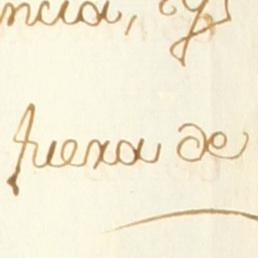 ncia, y
fuera de